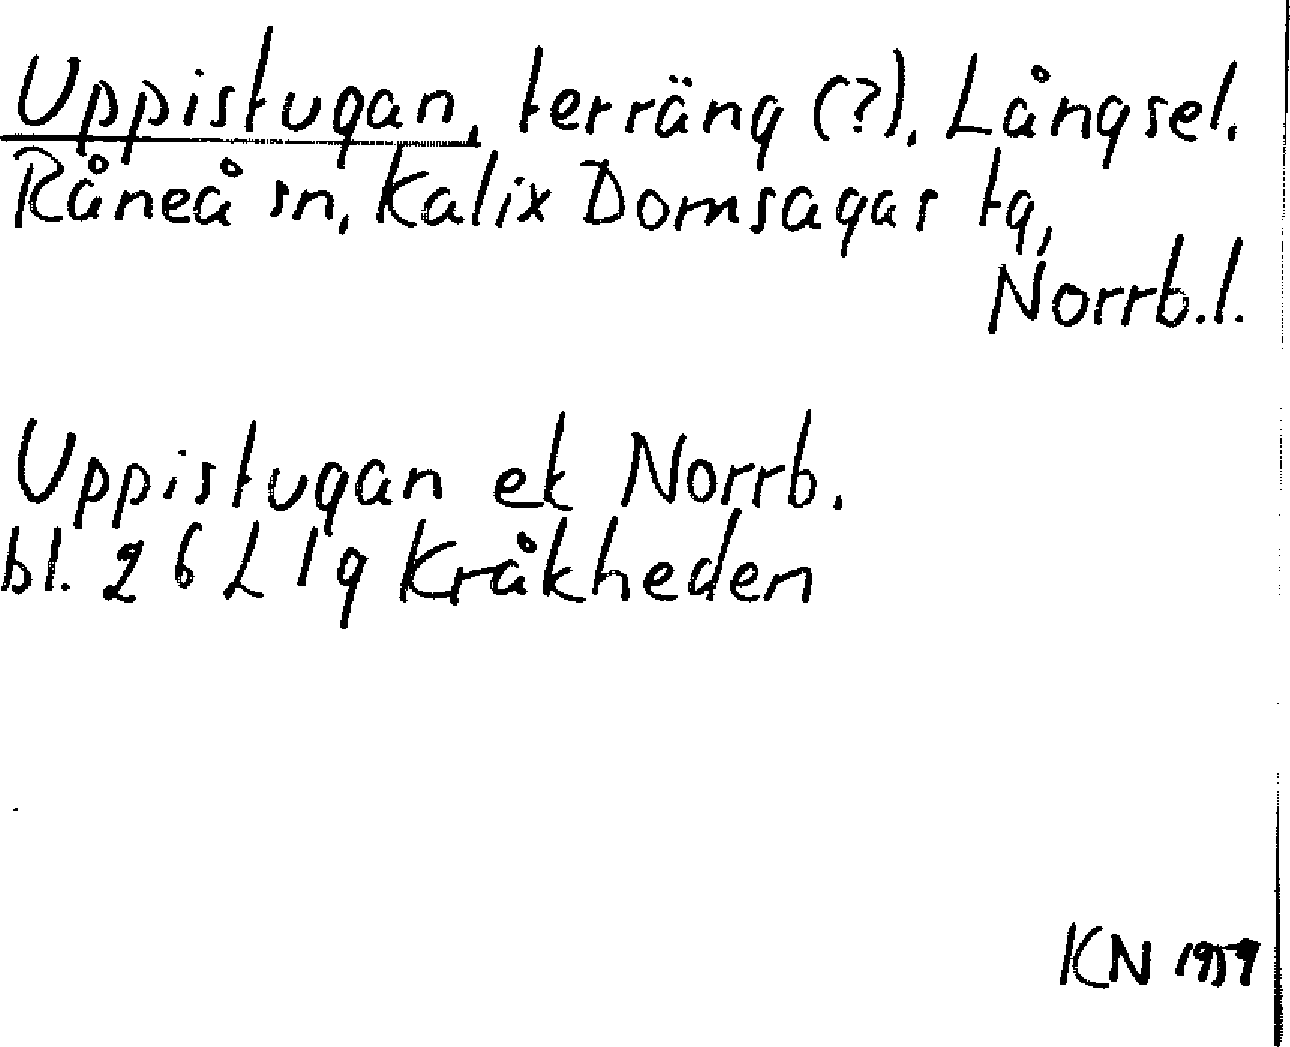 Uppistugan, terräng (?). Långsel.
Råneå sn, Kalix Domsagas tg,
Norrb.l.
Uppistugan ek Norrb.
bl. 26 L 1g Kråkheden
KN 1959